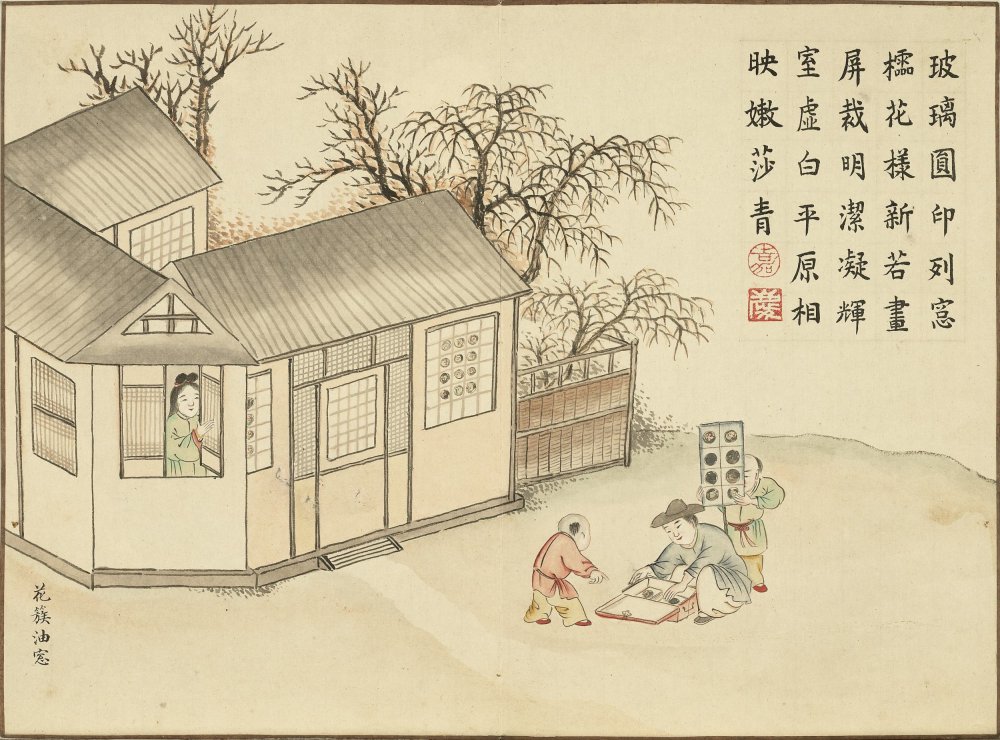 玻璃圓印列窓
檽花樣新若畫
屏裁明潔凝輝
室虛白平原相
映嫩莎青
嘉
慶
花簇油窓